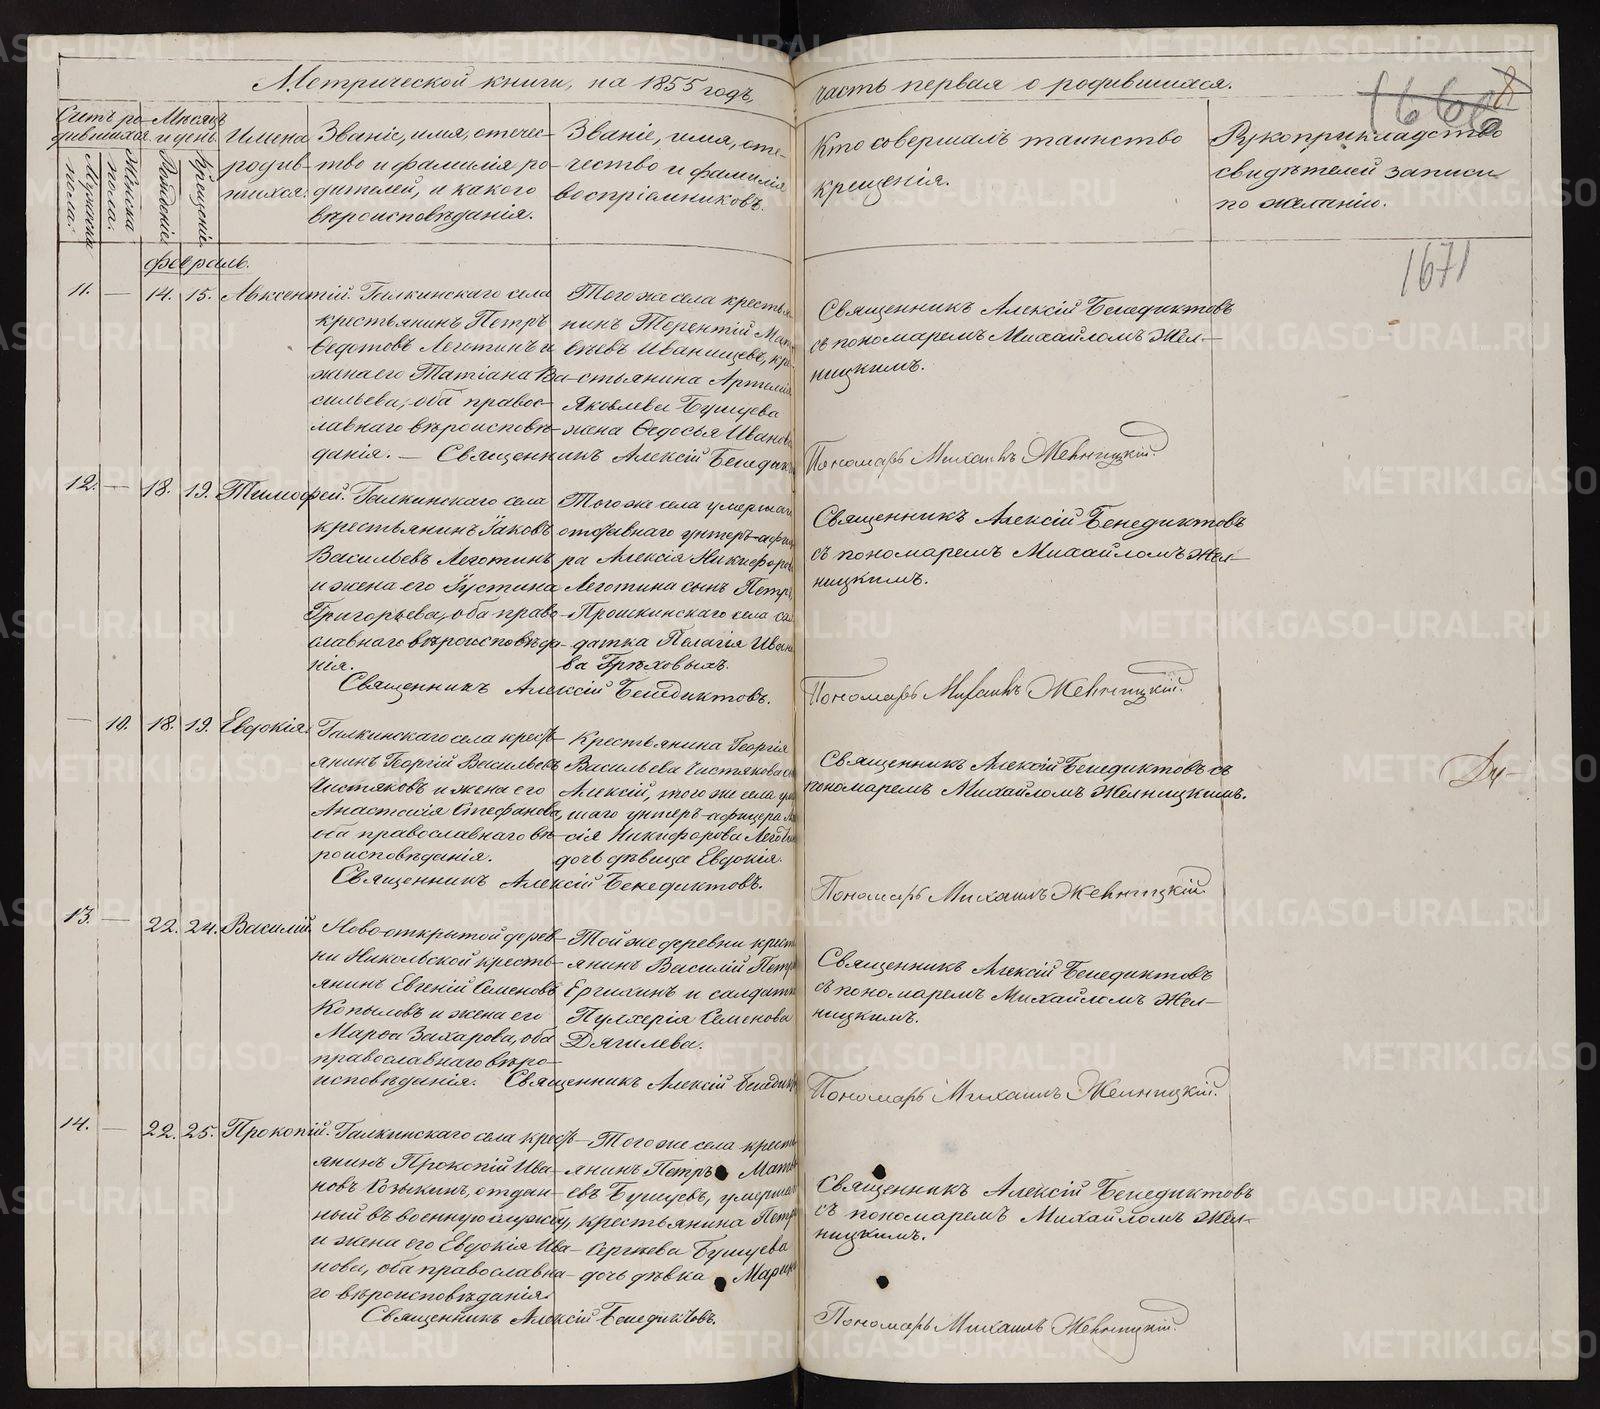 Метрической книги, на 1855 годъ, часть первая о родившихся.
Счетъ ро-
дившихся
Мѣсяцъ
и день
Мужеска
пола.
Женска
пола.
Рожденіе
Крещеніе
Имена
родив-
шихся.
Званіе, имя, отечес-
тво и фамилія ро-
дителей, и какого
вѣроисповѣданія.
Званіе, имя, оте-
чество и фамилія
воспріемниковъ.
Кто совершалъ таинство
крещенія.
Рукоприкладство
свидѣтелей записи
по желанію.
1671
Февраль.
11. — 14. 15. Авксентій.
Галкинскаго села
крестьянинъ Петръ
Ѳедотовъ Леготинъ и
жена его Татіана Ва-
сильева, оба правос-
лавнаго вѣроисповѣ-
данія. —
Того же села кресть
нинъ Терентій
Иванищевъ, кре
стьянина Артемія
Яковлева Бушуева
жена Ѳедосья Иванова
Священникъ Алексій Бенедик
Священникъ Алексій Бенедиктовъ
съ пономаремъ Михайломъ Жел-
ницкимъ.
Пономарь Михаилъ Желницкій.
12. — 18. 19. Тимофей.
Галкинскаго села
крестьянинъ Іаковъ
Васильевъ Леготинъ
и жена его Іустина
Григорьева, оба право-
славнаго вѣроисповѣда-
нія.
Того же села умершаго
отставнаго унтеръ-афице
ра Алексія Никифоров
Леготина сынъ Петръ,
Прошкинскаго села сол
датка Пелагія Ивано
ва Грѣховыхъ.
Священникъ Алексій Бенедиктовъ.
Священникъ Алексій Бенедиктовъ
съ пономаремъ Михайломъ Жел-
ницкимъ.
Пономарь Михаилъ Желницкій.
— 10. 18. 19. Евдокія.
Галкинскаго села кресть-
янинъ Георгій Васильевъ
Чистяковъ и жена его
Анастасія Стефанова,
оба православнаго вѣ-
роисповѣданія.
Крестьянина Георгія
Васильева Чистякова сы
Алексій, того же села уме
шаго унтеръ-афицера Але
сія Никифорова Леготи
дочь дѣвица Евдокія.
Священникъ Алексій Бенедиктовъ.
Священникъ Алексій Бенедиктовъ съ
пономаремъ Михайломъ Желницкимъ.
Пономарь Михаилъ Желницкій.
13. — 22. 24. Василій.
Ново-открытой дерев-
ни Никольской кресть-
янинъ Евгеній Семеновъ
Копыловъ и жена его
Марѳа Захарова, оба
православнаго вѣро-
исповѣданія.
Той же деревни крест
янинъ Василій Петро
Ергихинъ и салдатка
Пулхерія Семенова
Дягилева.
Священникъ Алексій Бенедик
Священникъ Алексій Бенедиктовъ
съ пономаремъ Михайломъ Жел-
ницкимъ.
Пономарь Михаилъ Желницкій.
14. — 22. 25. Прокопій.
Галкинскаго села кресть-
янинъ Прокопій Ива-
новъ Козыкинъ, отдан-
ный въ военную службу,
и жена его Евдокія Ива-
нова, оба православна-
го вѣроисповѣданія.
Того же села кресть
янинъ Петръ Матѳ
евъ Бушуевъ, умершаго
крестьянина Петра
Сергѣева Бушуева
дочь дѣвка Марѳа
Священникъ Алексій Бенедиктовъ.
Священникъ Алексій Бенедиктовъ
съ пономаремъ Михайломъ Жел-
ницкимъ.
Пономарь Михаилъ Желницкій.
METRIKI.GASO-URAL.RU